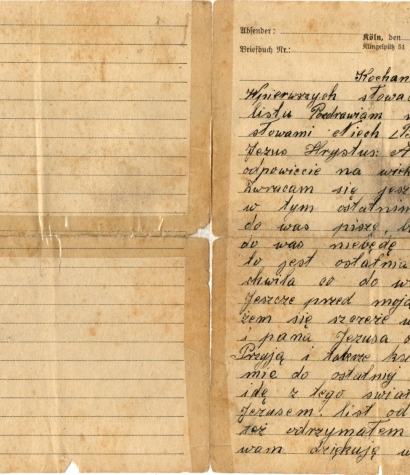 Absender:
Köln, den
Briefbuch Nr.:
Klingelpütz 51
Kochan
Wpierwszych słowac
listu Pozdrawiam
słowami Niech
Jezus Hrystus A
odpowiecie na wiek
Zwracam się jesz
w tym ostatnim
do was piszę,
do was niebędę
to jest ostatnia
chwila co do w
Jeszcze przed moją
żem się szczeże
i pana Jezusa
Przyją i
mie do ostatniej
idę z tego świat
Jezusem list od
też odrzymałem
wam dziękuję w